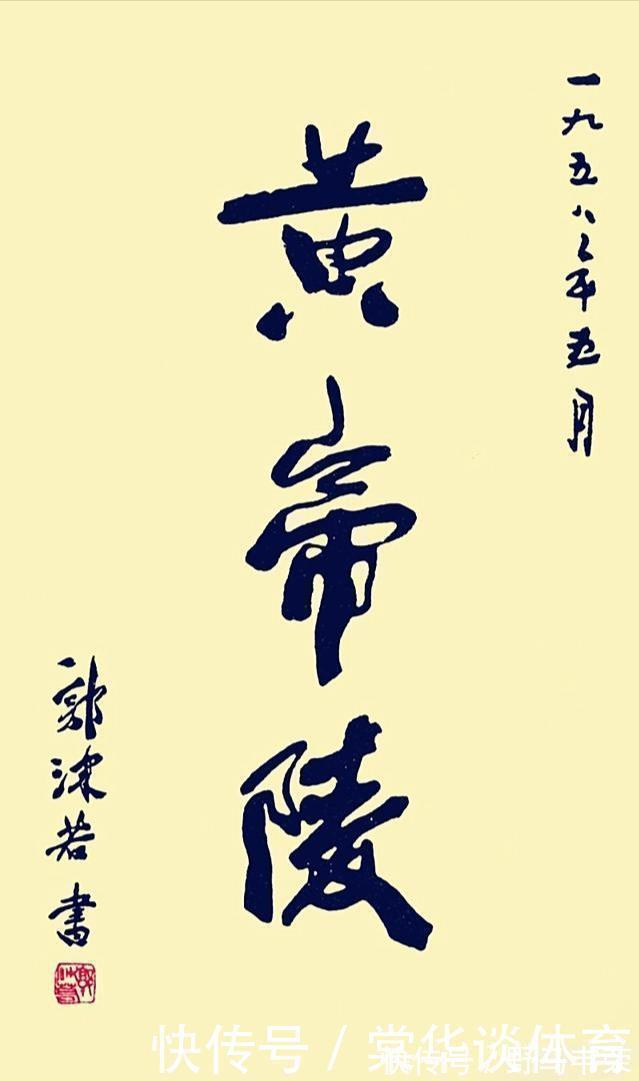 一九五八年五月
黄帝陵
郭沫若书
快传号 / 棠华谈体育